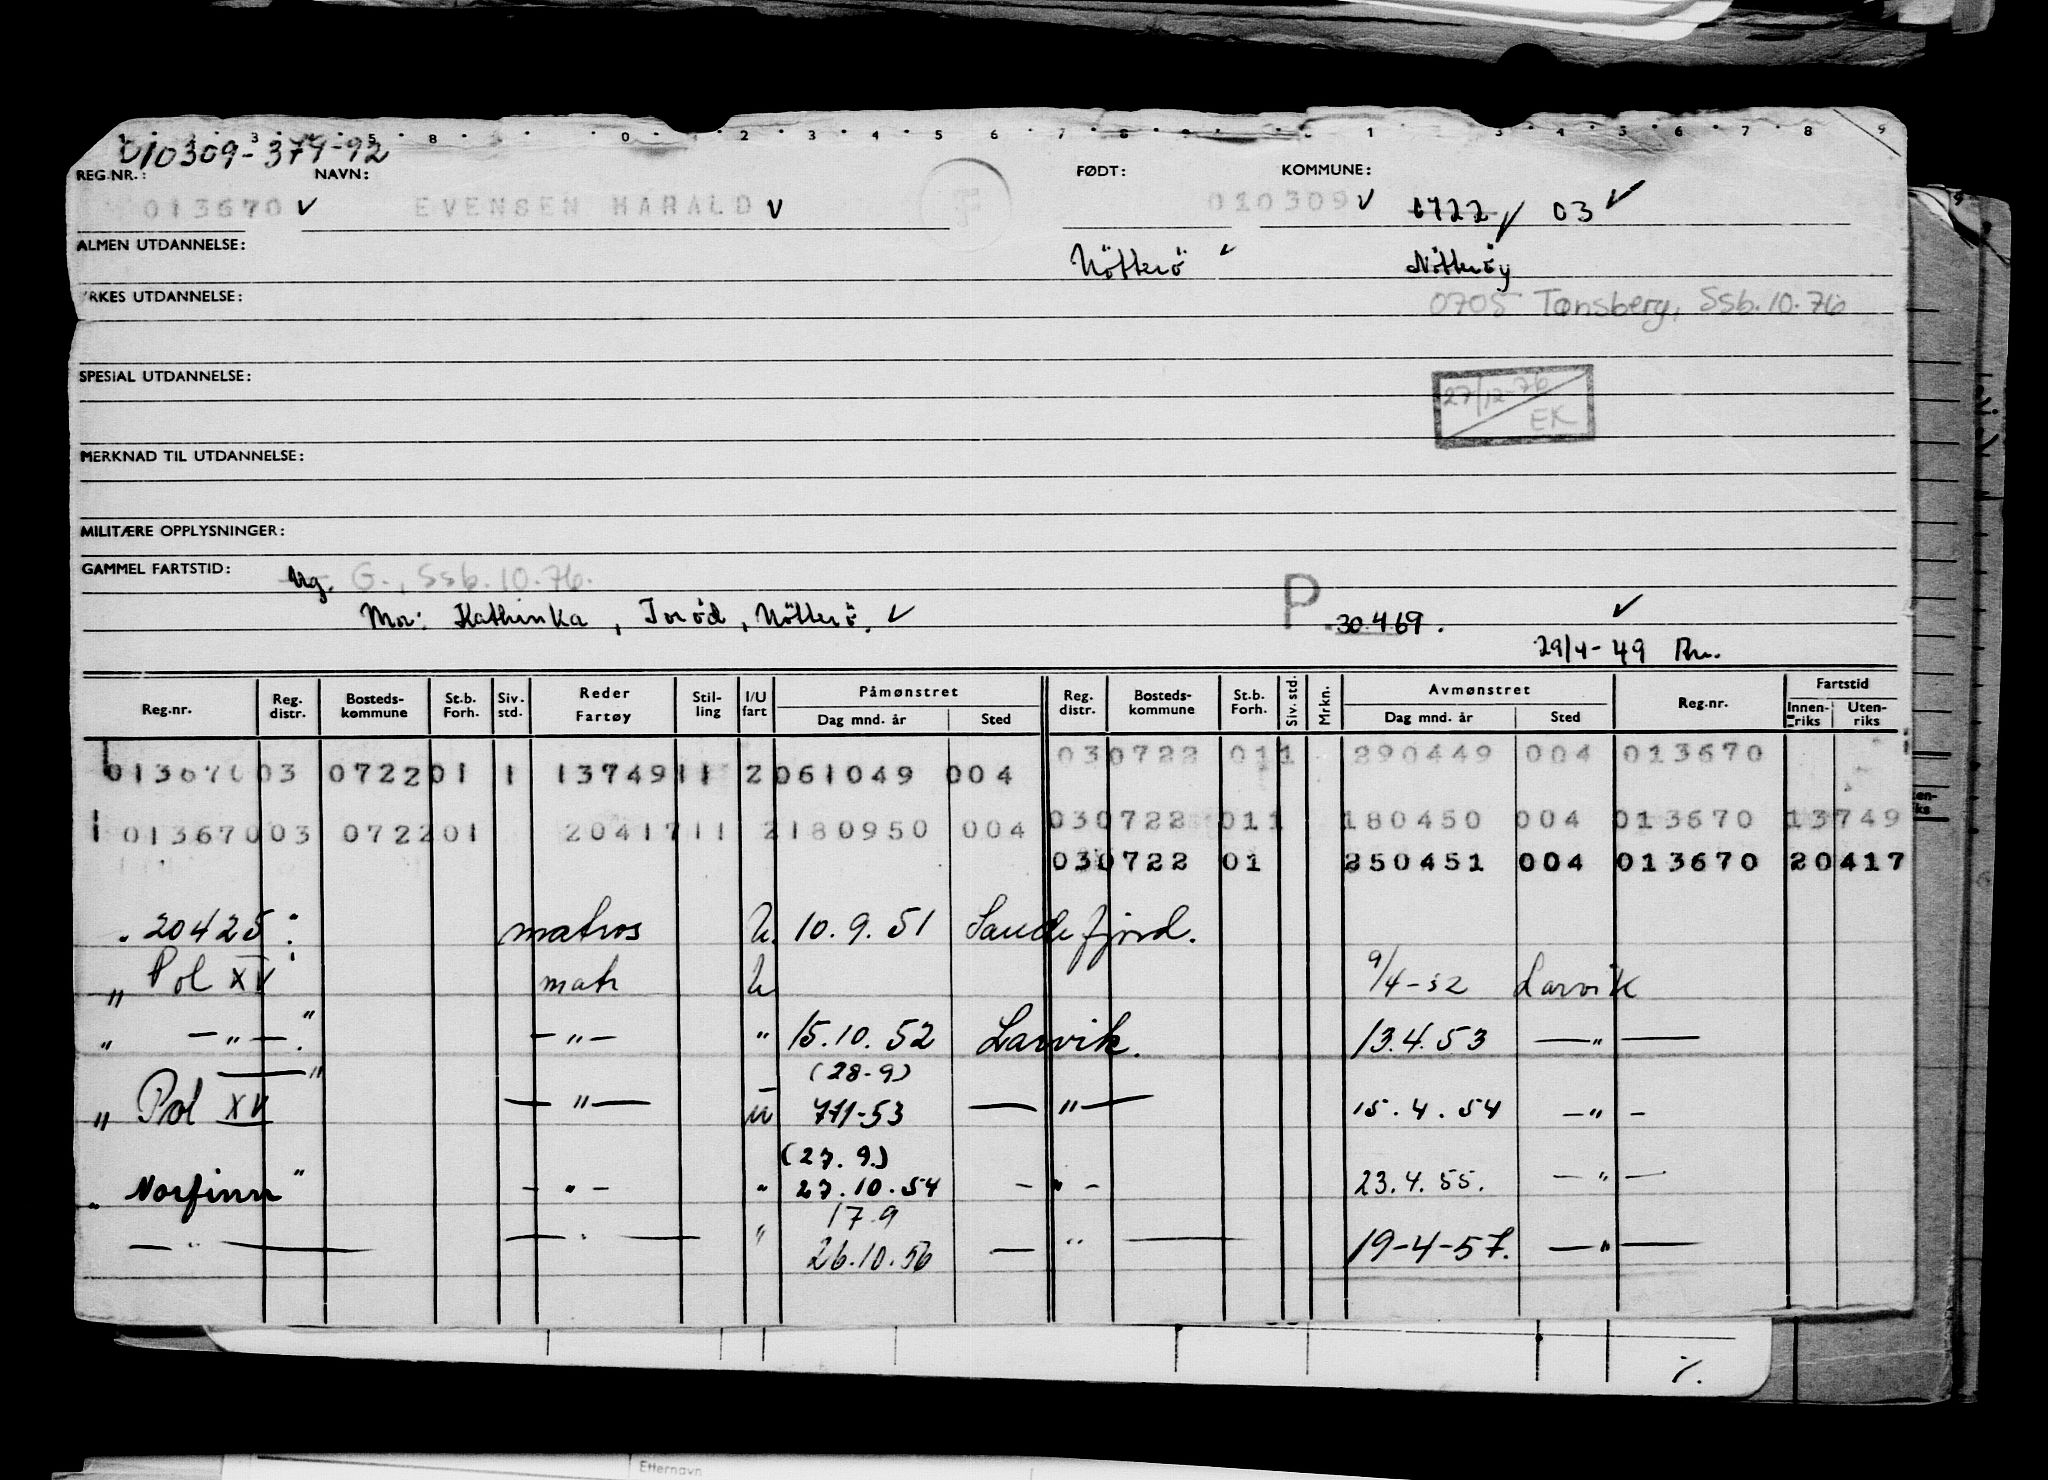 010309-374-92
REG.NR.: NAVN: FØDT: KOMMUNE:
013670 v EVENSEN HARALD v 010309 v 0722 v 03 v
ALMEN UTDANNELSE: Nötterö v Nötteröy
YRKES UTDANNELSE: 0705 Tønsberg, Ssb. 10. 76
SPESIAL UTDANNELSE:
27/12-76
EK
MERKNAD TIL UTDANNELSE:
MILITÆRE OPPLYSNINGER:
GAMMEL FARTSTID: Ug. G., Ssb. 10. 76.
Mor: Kathinka, Torød, Nötterö. v P 30.4.69. v
29/4-49
Reg.nr. Reg. distr. Bosteds-kommune St.b. Forh. Siv. std. Reder Fartøy Stil-ling I/U fart Påmønstret Dag mnd. år Sted Reg. distr. Bosteds-kommune St.b. Forh. Siv. std. Mrkn. Avmønstret Dag mnd. år Sted Reg.nr. Fartstid Innen-riks Uten-riks
030722 011 290449 004 013670
013670 03 072201 1 1374911 2 061049 004
030722 011 180450 004 013670 13749
1 013670 03 072201 2041711 2 180950 004
030722 01 250451 004 013670 20417
" 20425 : matros U. 10. 9. 51 Sandefjord.
" Pol XV " matr U 9/4-52 Larvik
" — " — . " — " — " 15. 10. 52 Larvik. 13. 4. 53 — " —
(28-9)
" Pol XV " — " — U 7/11-53 — " — 15. 4. 54 — " —
(27. 9.)
" Norfinn " — " — " 27. 10. 54 — " — 23. 4. 55. — " —
17.9
— " — — " — " 26. 10. 56 — " — 19-4-57. — " —
Etternavn